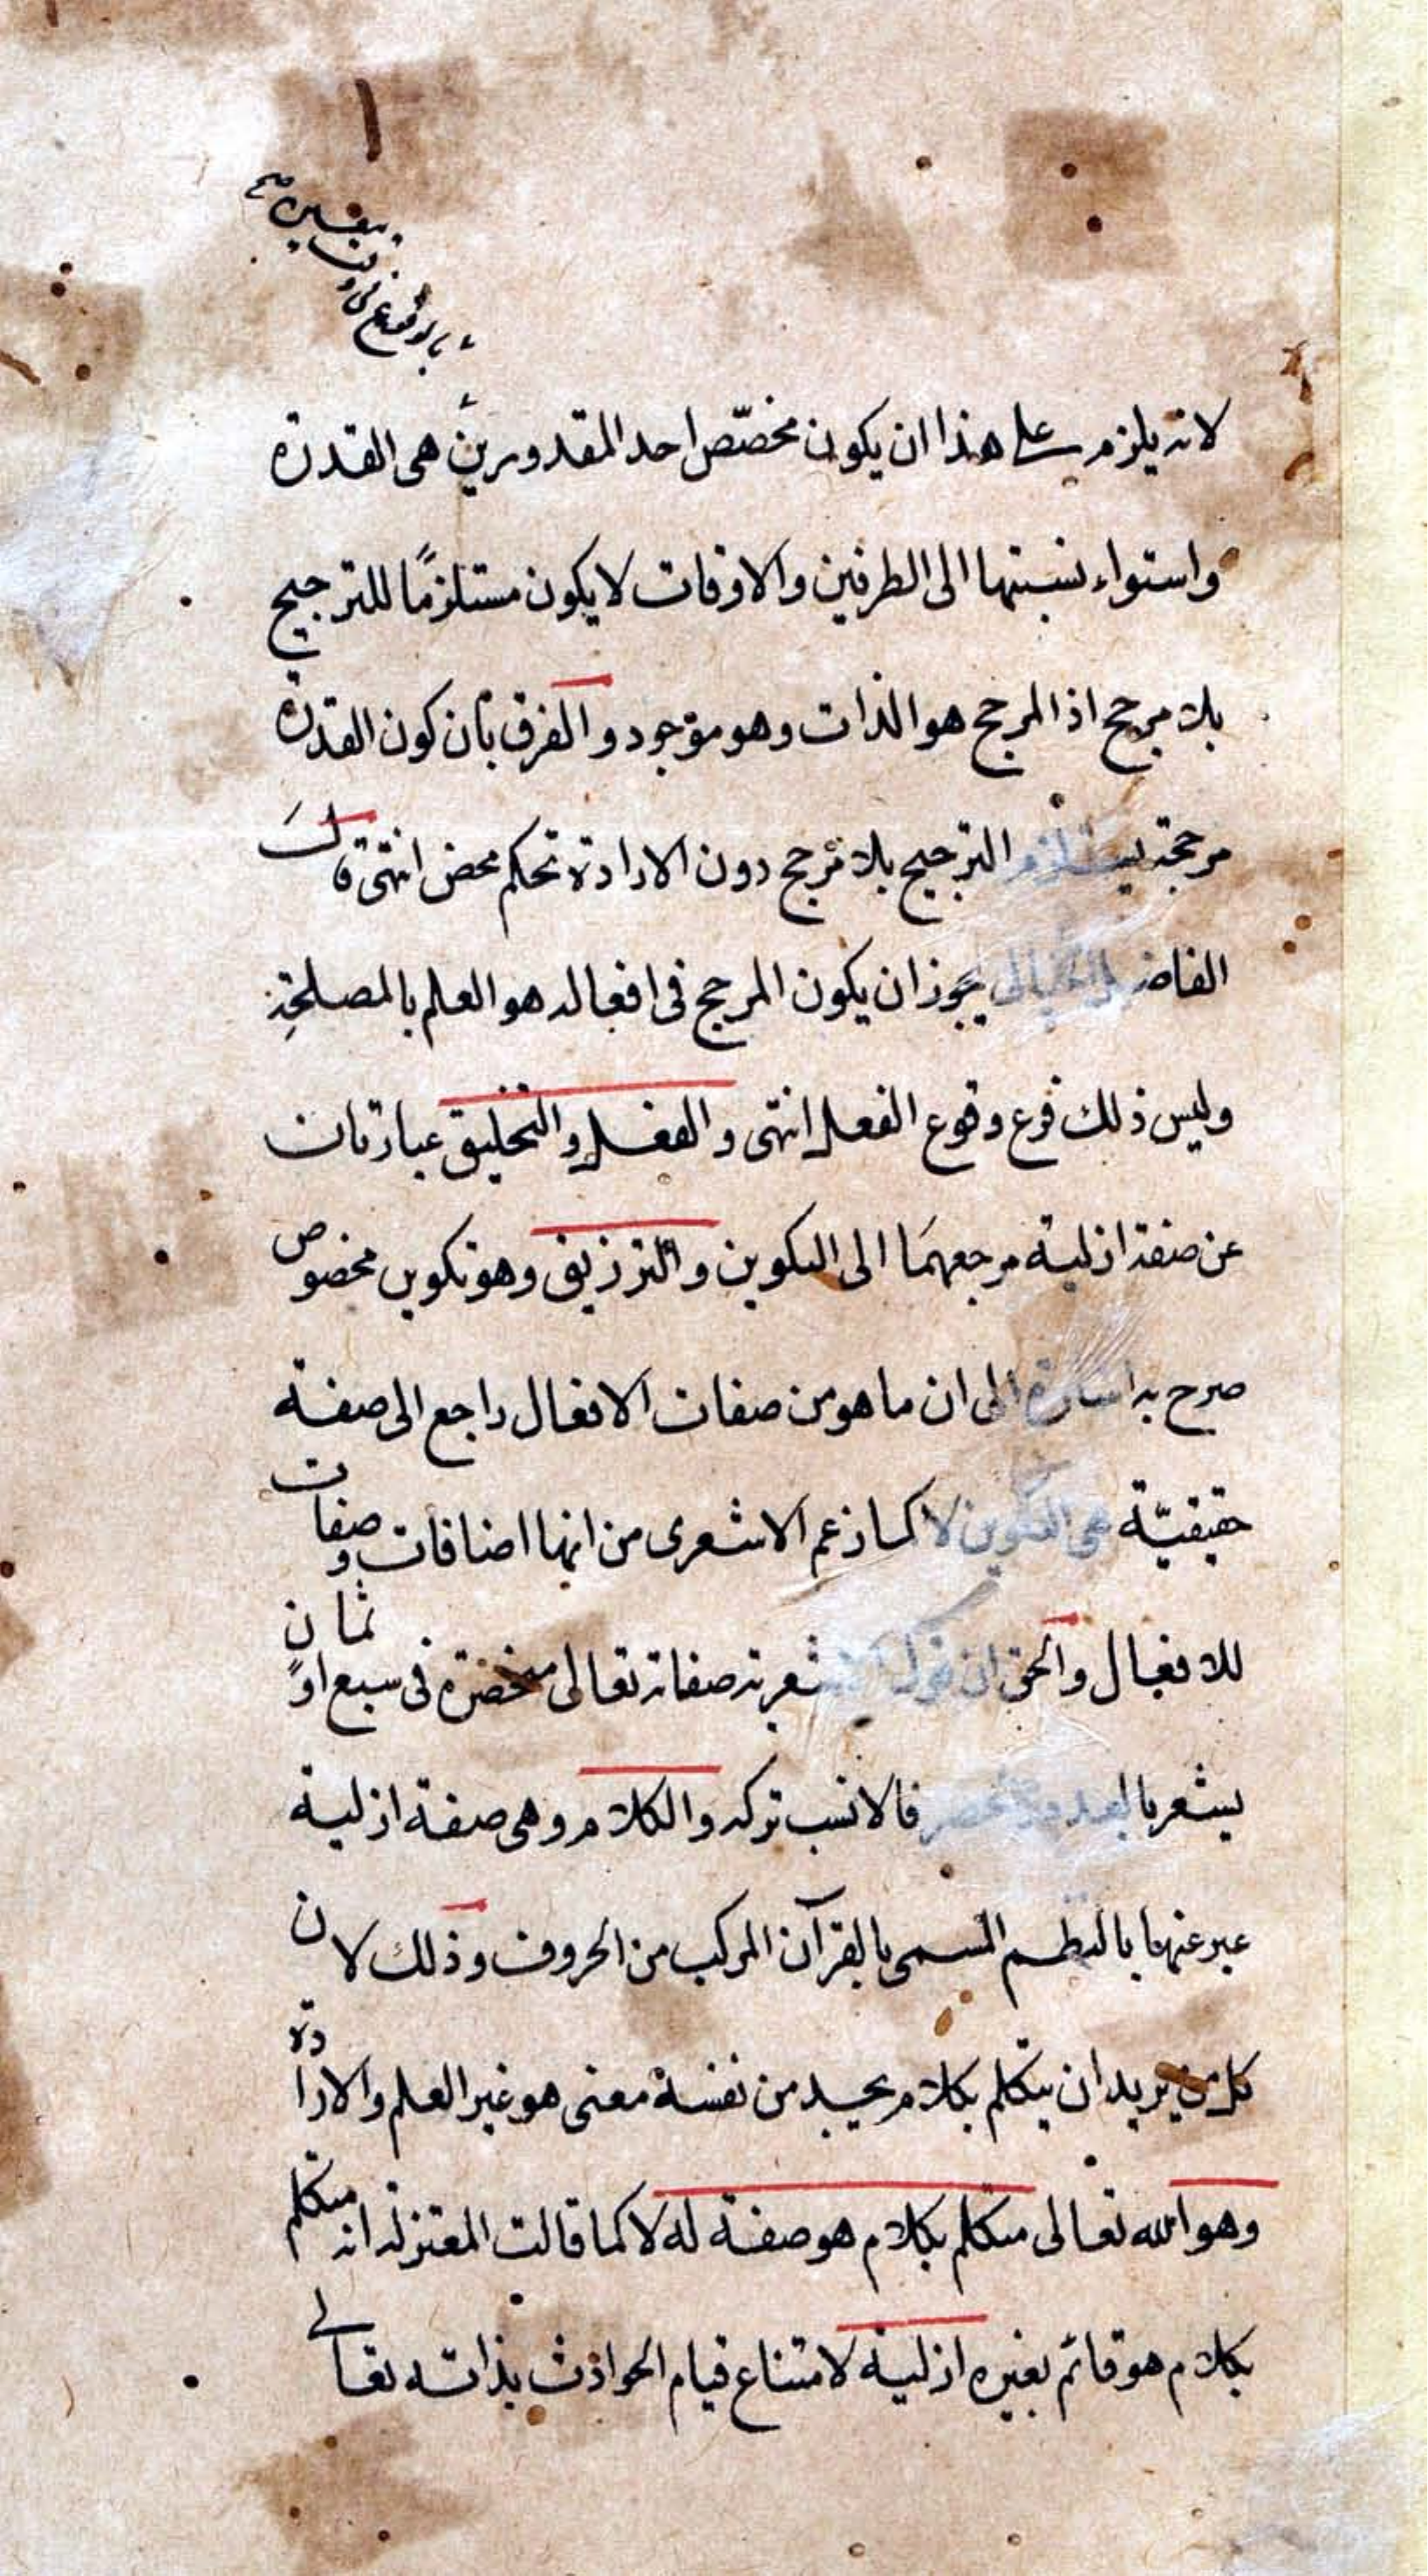 بالوقوع في وقت
بتقدير صح
لانه يلزم على هذا ان يكون مخصّص احد المقدورين هى القدرة
واستواء نسبتها الى الطرفين والاوقات لا يكون مستلزمًا للترجيح
بلا مرجح اذ المرجح هو الذات وهو موجود والفرق بأن كون القدرة
مرجحة يستلزم الترجيح بلا مرجح دون الارادة تحكم محض انتهى قال
الفاضل الخيالى يجوز ان يكون المرجح فى افعاله هو العلم بالمصلحة
وليس ذلك فرع وقوع الفعل انتهى والفعل والتخليق عبارتان
عن صفة ازلية مرجعهما الى التكوين والترزيق وهو تكوين مخصوص
صرح به اشارة الى ان ما هو من صفات الافعال راجع الى صفة
حقيقيّة هى التكوين لا كما زعم الاشعرى من انها اضافات وصفات
للافعال والحق ان قول الاشعرية صفاته تعالى منحصرة فى سبع او ثمان
يشعر بالعدد فالانسب تركه والكلام وهى صفة ازلية
عبر عنها بالنظم المسمى بالقرآن المركب من الحروف وذلك لان
كل من يريد ان يتكلم بكلام يجد من نفسه معنى هو غير العلم والارادة
وهو الله تعالى متكلم بكلام هو صفة له لا كما قالت المعتزلة انه متكلم
بكلام هو قائم بغيره ازلية لامتناع قيام الحوادث بذاته تعالى